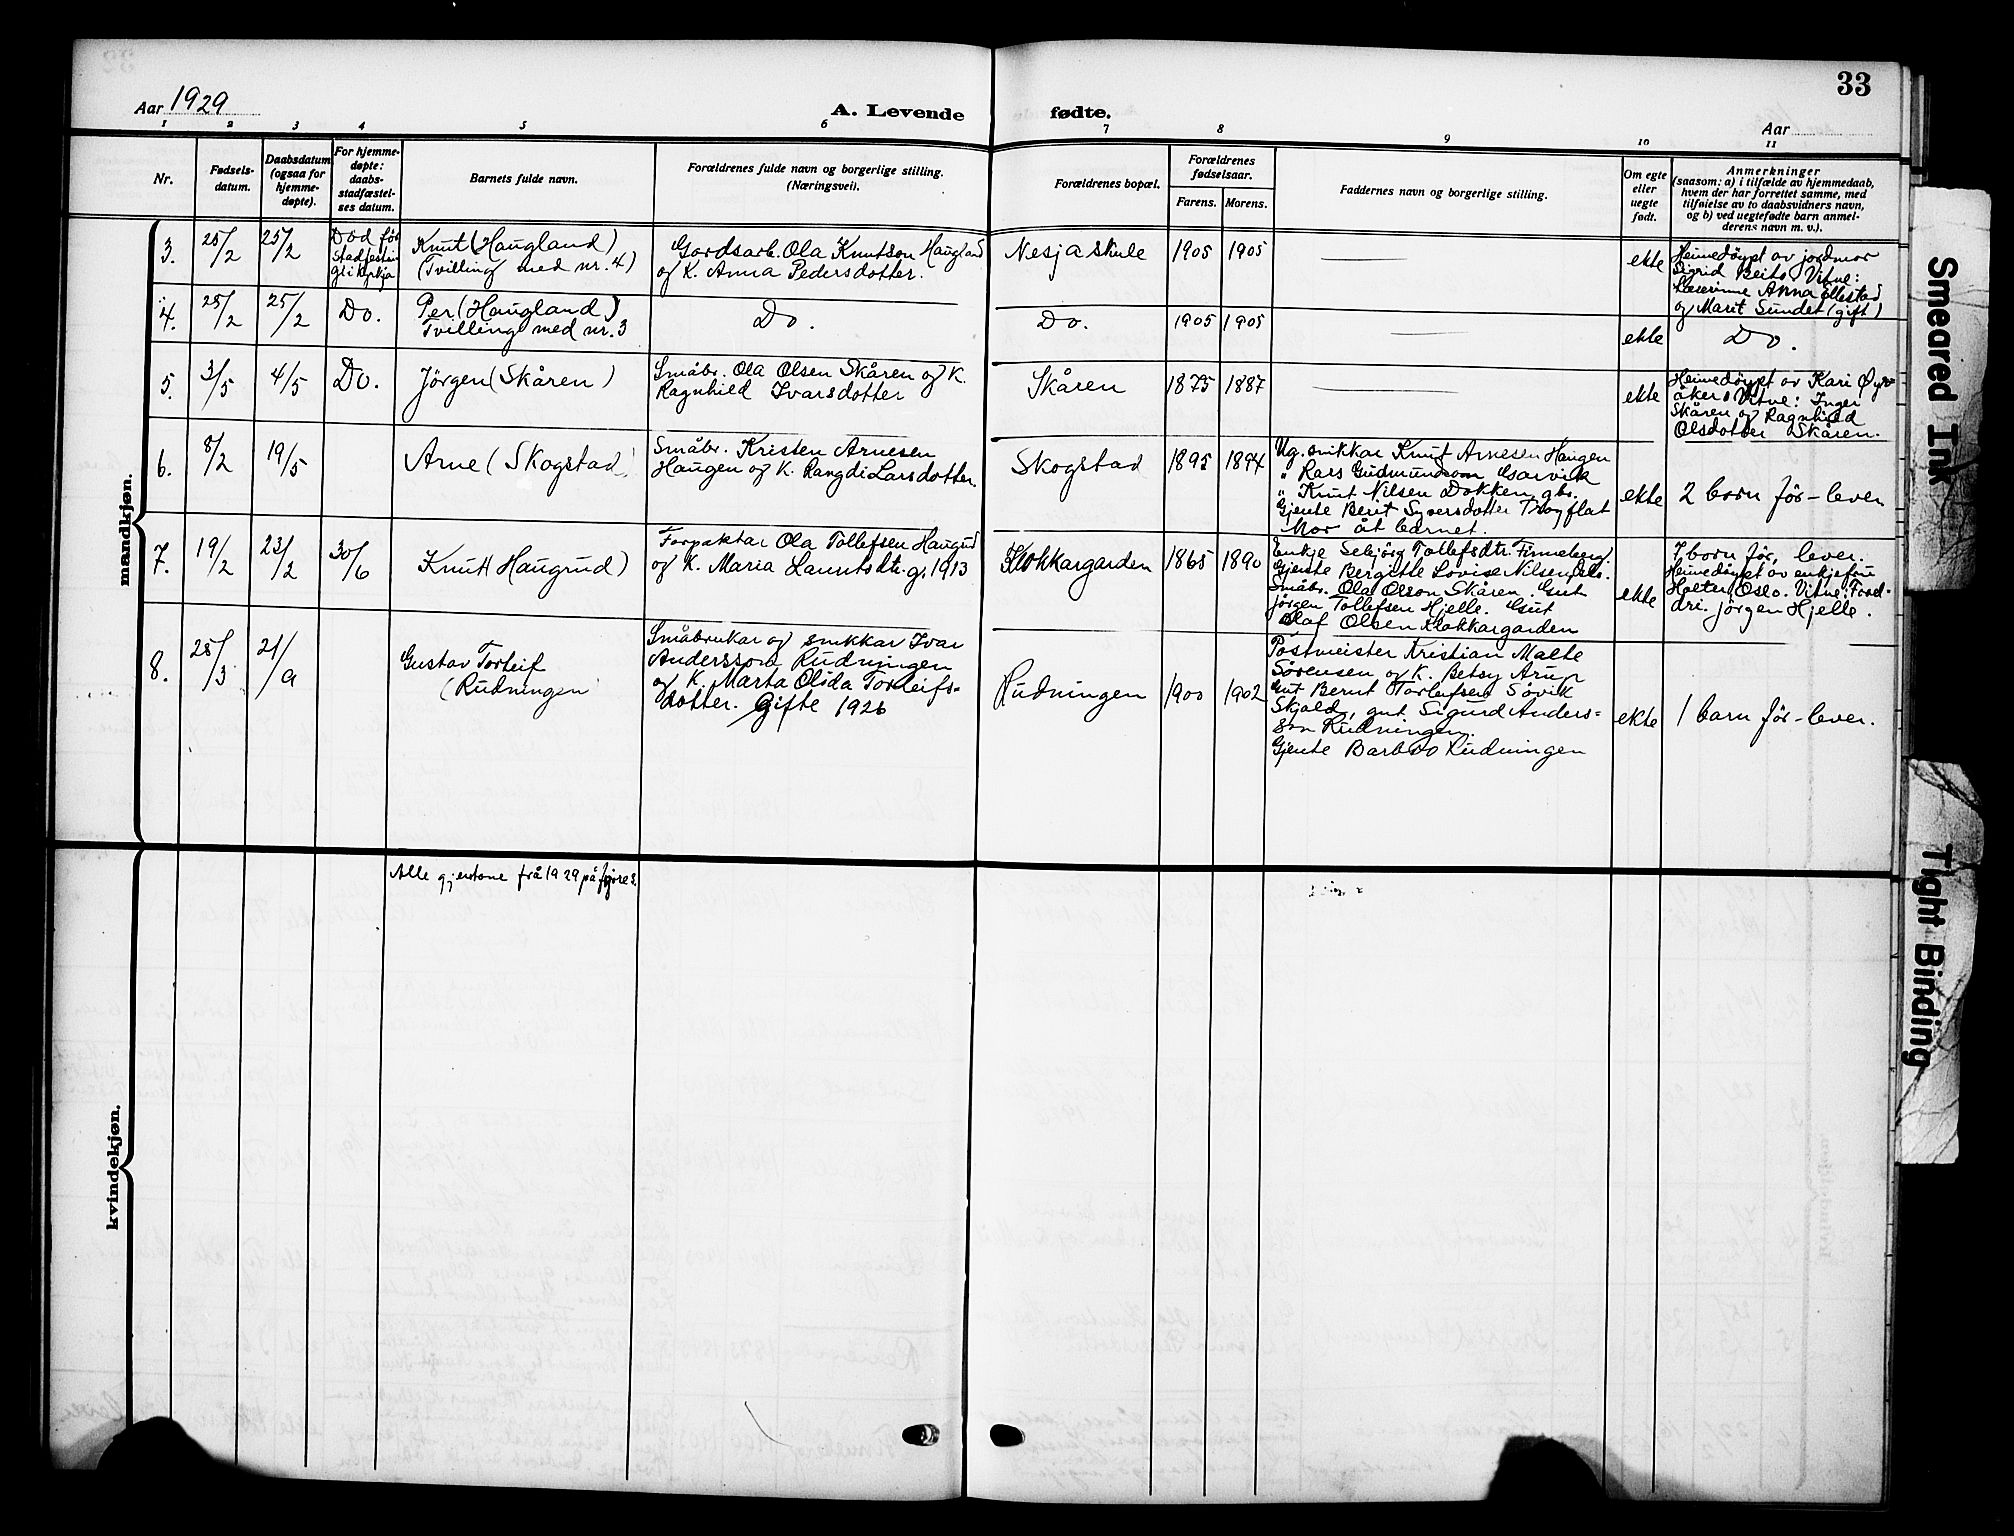 33
Aar 1929
A. Levende fødte.
Aar
1 2 3 4 5 6 7 8 9 10 11
Nr.
Fødsels-
datum.
Daabsdatum
(ogsaa for
hjemme-
døpte).
For hjemme-
døpte:
daabs-
stadfæstel-
ses datum.
Barnets fulde navn.
Forældrenes fulde navn og borgerlige stilling.
(Næringsvei).
Forældrenes bopæl.
Forældrenes
fødselsaar.
Farens. Morens.
Faddernes navn og borgerlige stilling.
Om egte
eller
uegte
født.
Anmerkninger
(saasom: a) i tilfælde av hjemmedaab,
hvem der har forrettet samme, med
tilføielse av to daabsvidners navn,
og b) ved uegtefødte barn anmel-
derens navn m. v.).
mandkjøn.
3.
25/2
25/2
Död för
stadfestin
i kyrkja
Knut (Haugland)
(Tvilling med nr. 4)
Gardsarb. Ola Knutson Haugland
og K. Anna Pedersdotter.
Nesja skule
1905 1905
ekte
Heimedöypt av jordmor
Sigrid Beito Vitne:
Lærerinne Anna Ellestad
og Marit Sundet (gift)
4.
25/2
25/2
Do.
Per (Haugland)
Tvilling med nr. 3
Do.
Do.
1905 1905
ekte
Do.
5.
3/5
4/5
Do.
Jörgen (Skåren)
Småbr. Ola Olsen Skåren og K.
Ragnhild Ivarsdotter
Skåren
1875 1887
ekte
Heimedöypt av Kari Øyre-
åker. Vitne: Inger
Skåren og Ragnhild
Olsdotter Skåren.
6.
8/2
19/5
Arne (Skogstad)
Småbr. Kristen Arnesen
Haugen og K. Rangdi Larsdotter.
Skogstad
1895 1894
Ug. snikkar Knut Arnesen Haugen
" Lars Gudmundson Garvik
" Knut Nilsen Dokken, gbr.
Gjente Berit Syversdotter Trogflat
Mor åt barnet.
ekte
2 born för – lever
7.
19/2
23/2
30/6
Knut (Haugrud)
Forpaktar Ola Tollefsen Haugrud
og K. Maria Lauritsdtr. g. 1913
Klokkargarden
1865 1890
Enkje Sebjörg Tollefsdtr. Finneberg
Gjente Bergitte Lovise Nilsen Oslo.
Småbr. Ola Olson Skåren. Gut
Jörgen Tollefsen Hjelle. Gut
Olaf Olsen Klokkargarden
ekte
7 born för, lever.
Heimedöypt av enkjefru
Holter, Oslo. Vitne: Fred-
dri. Jörgen Hjelle.
8.
25/3
21/9
Gustav Torleif
(Rudningen
Småbrukar og snikkar Ivar
Andersson Rudningen
og K. Marta Olida Torleifs-
dotter. Gifte 1926
Rudningen
1900 1902
Postmeister Kristian Malte
Sörensen og K. Betsy Arup
Gut Bernt Torleifsen Sövik
Skjold, gut Sigurd Anders-
son Rudningen.
Gjente Barbro Rudningen
ekte
1 barn för – lever.
kvindekjøn.
Alle gjentone frå 1929 på fyrre s.
Smeared Ink
Tight Binding